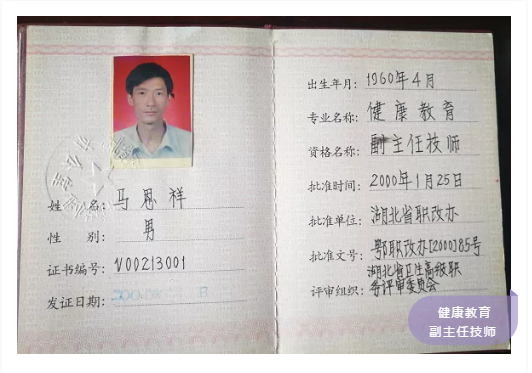 姓 名: 马恩祥
性 别: 男
证书编号: V00213001
发证日期:
出生年月: 1960年4月
专业名称: 健康教育
资格名称: 副主任技师
批准时间: 2000年1月25日
批准单位: 湖北省职改办
批准文号: 鄂职改办[2000]85号
评审组织: 湖北省卫生高级职
务评审委员会
健康教育
副主任技师